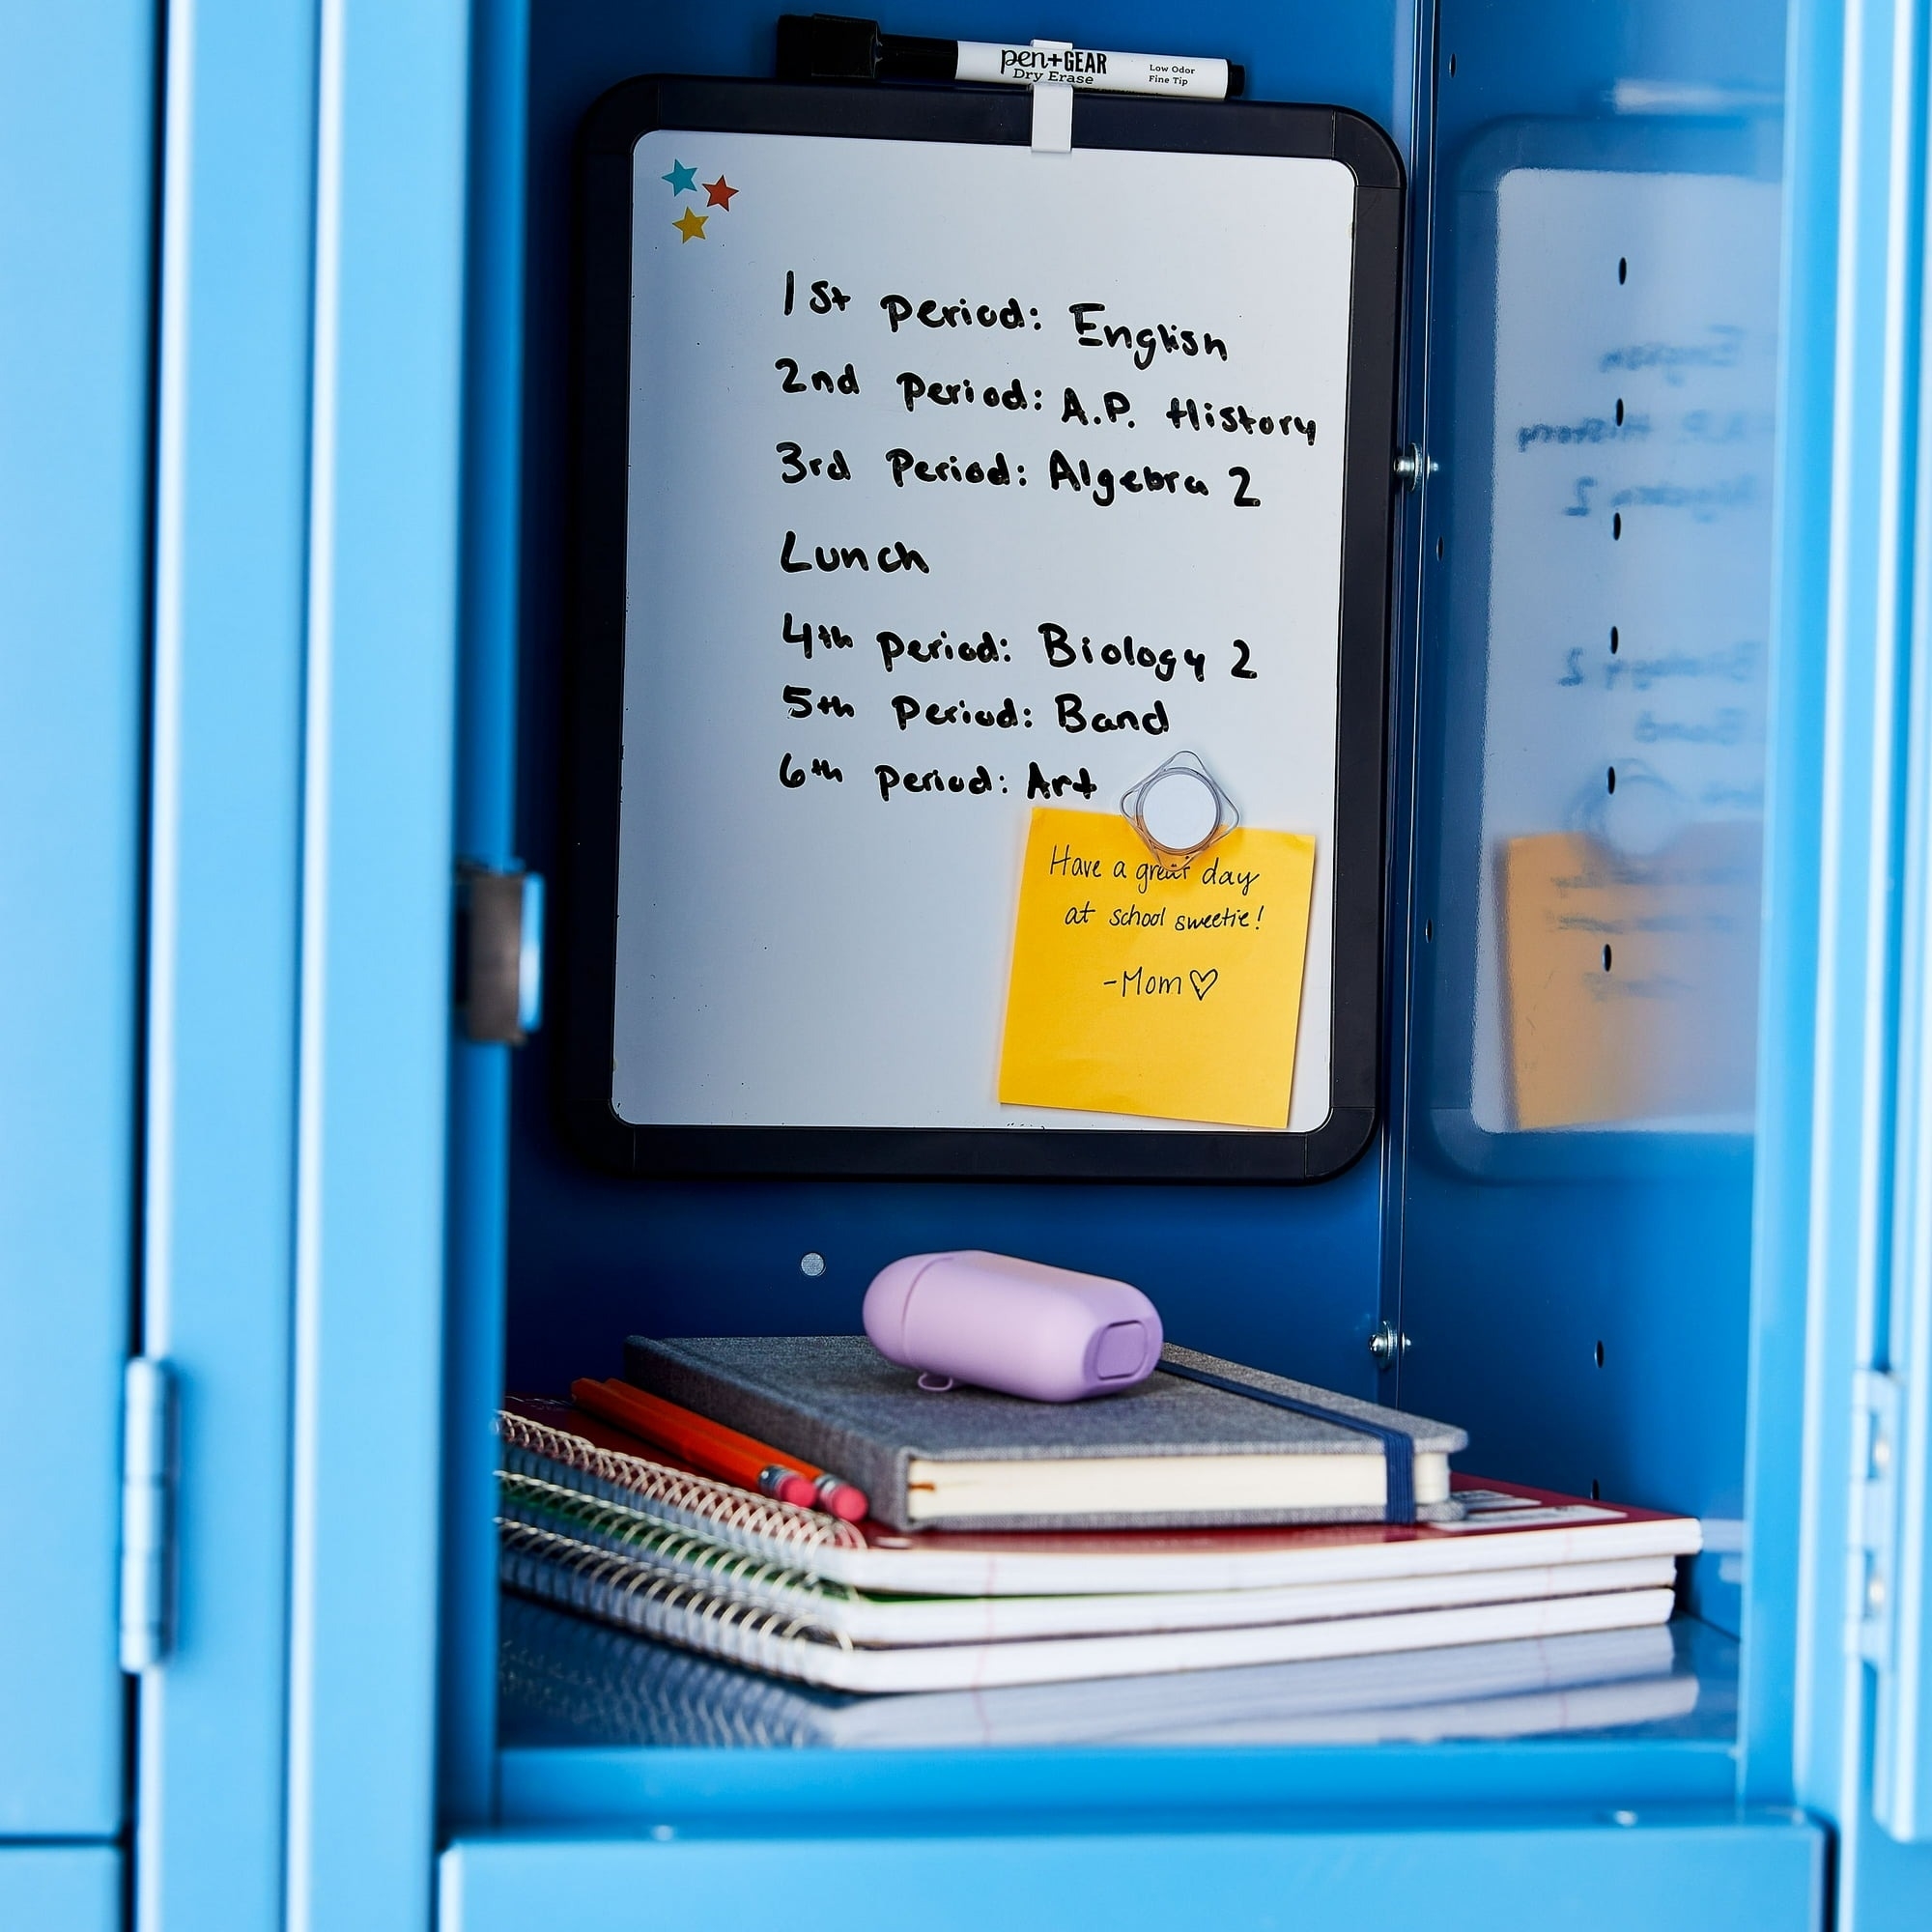 pen+GEAR
Dry Erase
Low Odor
Fine Tip
1st period: English
2nd period: A.P. History
3rd Period: Algebra 2
Lunch
4th period: Biology 2
5th Period: Band
6th period: Art
Have a great day
at school sweetie!
-Mom♡